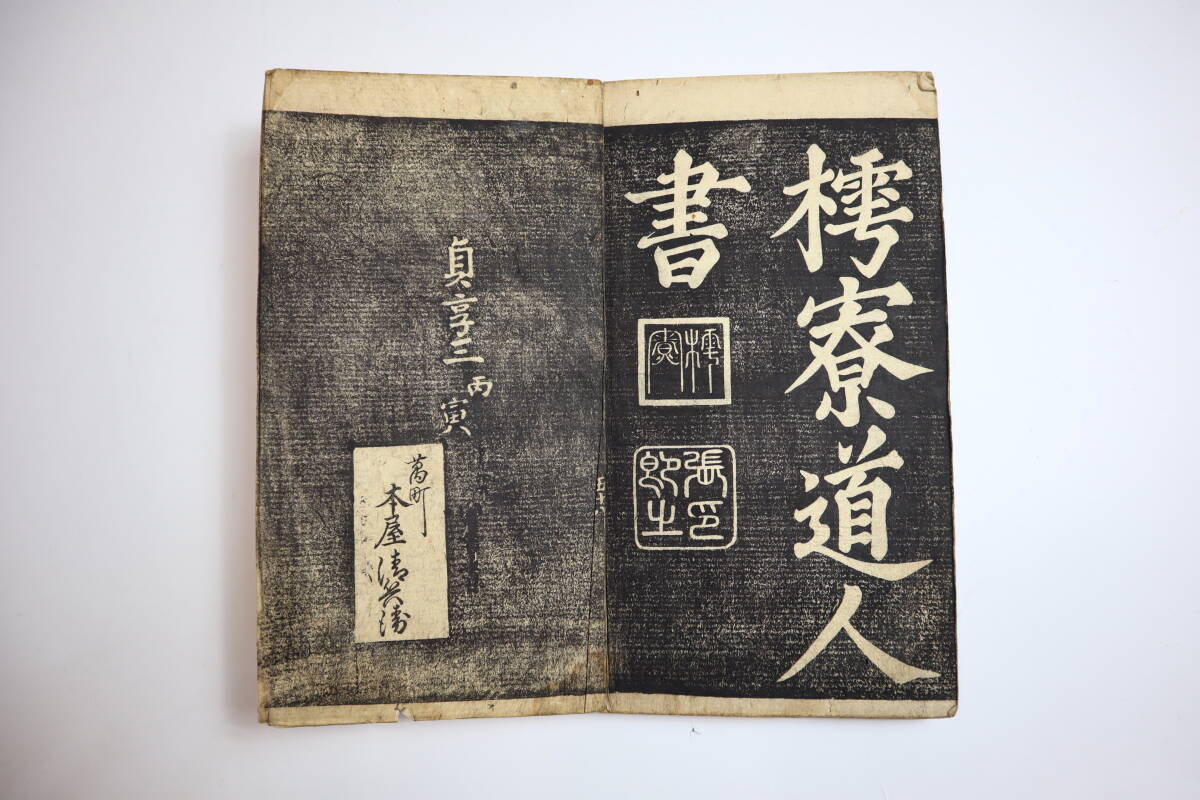 樗寮道人
書
樗寮
張即之印
貞享三丙寅
萬町
本屋清兵衛